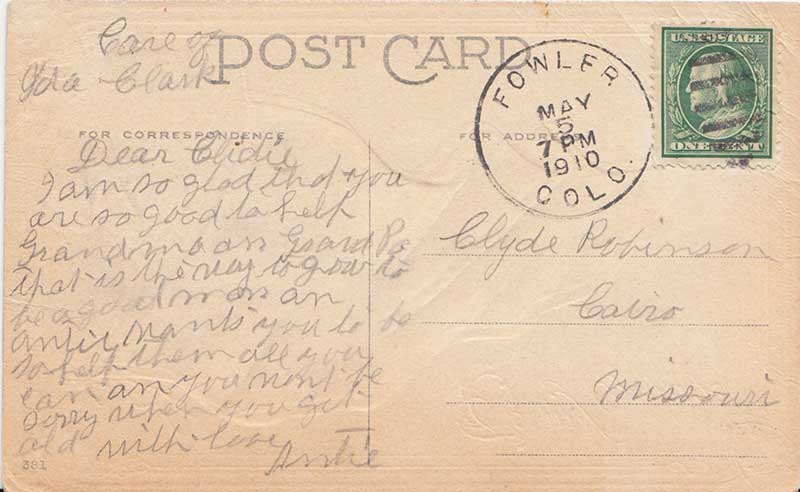 Care of
Ida Clark
POST CARD
FOWLER
MAY
5
7 PM
1910
COLO.
U.S. POSTAGE
ONE CENT
FOR CORRESPONDENCE
FOR ADDRESS
Dear Clidie
I am so glad that you
are so good to help
Grandma an Grand Pa
that is the way to grow to
be a good man an
antie wants you to be
so help them all you
can an you wont be
sorry when you get
old with love
Antie
Clyde Robinson
Cairo
Missouri
381